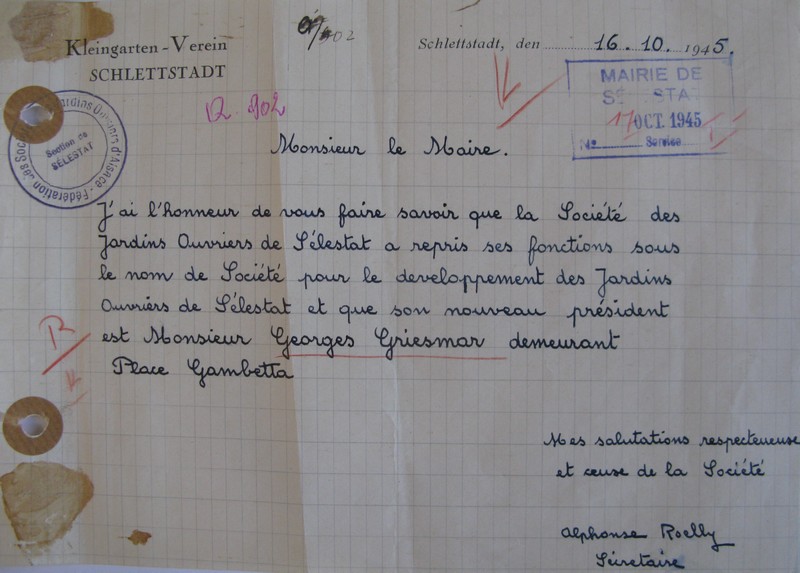 Kleingarten-Verein
SCHLETTSTADT
902
Schlettstadt, den 16.10.1945.
R. 902
MAIRIE DE
SÉLESTAT
17 OCT. 1945
No Service
Fédération des Soc Jardins Ouvriers d'Alsace
Section de
SÉLESTAT
Monsieur le Maire.
J'ai l'honneur de vous faire savoir que la Société des
Jardins Ouvriers de Sélestat a repris ses fonctions sous
le nom de Société pour le developpement des Jardins
Ouvriers de Sélestat et que son nouveau président
R
est Monsieur Georges Griesmar demeurant
Place Gambetta
Mes salutations respecteueuse
et ceuse de la Société
Alphonse Roelly
Sécretaire